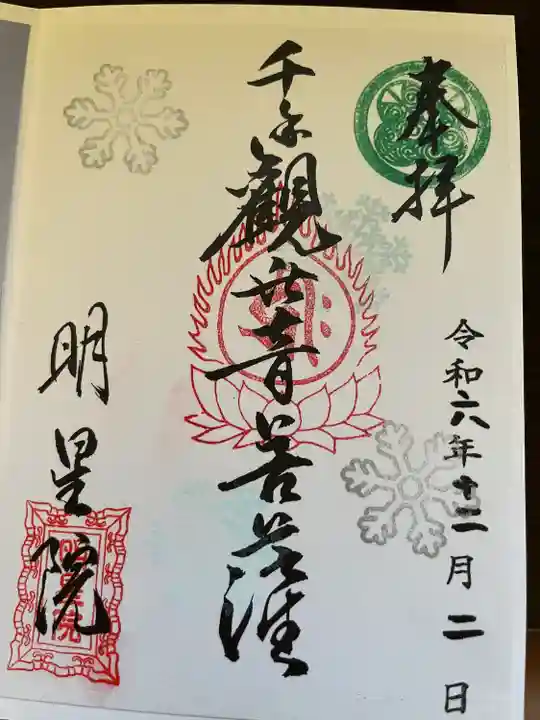 奉拝
令和六年十二月二日
千手觀世音菩薩
明星院
明星院